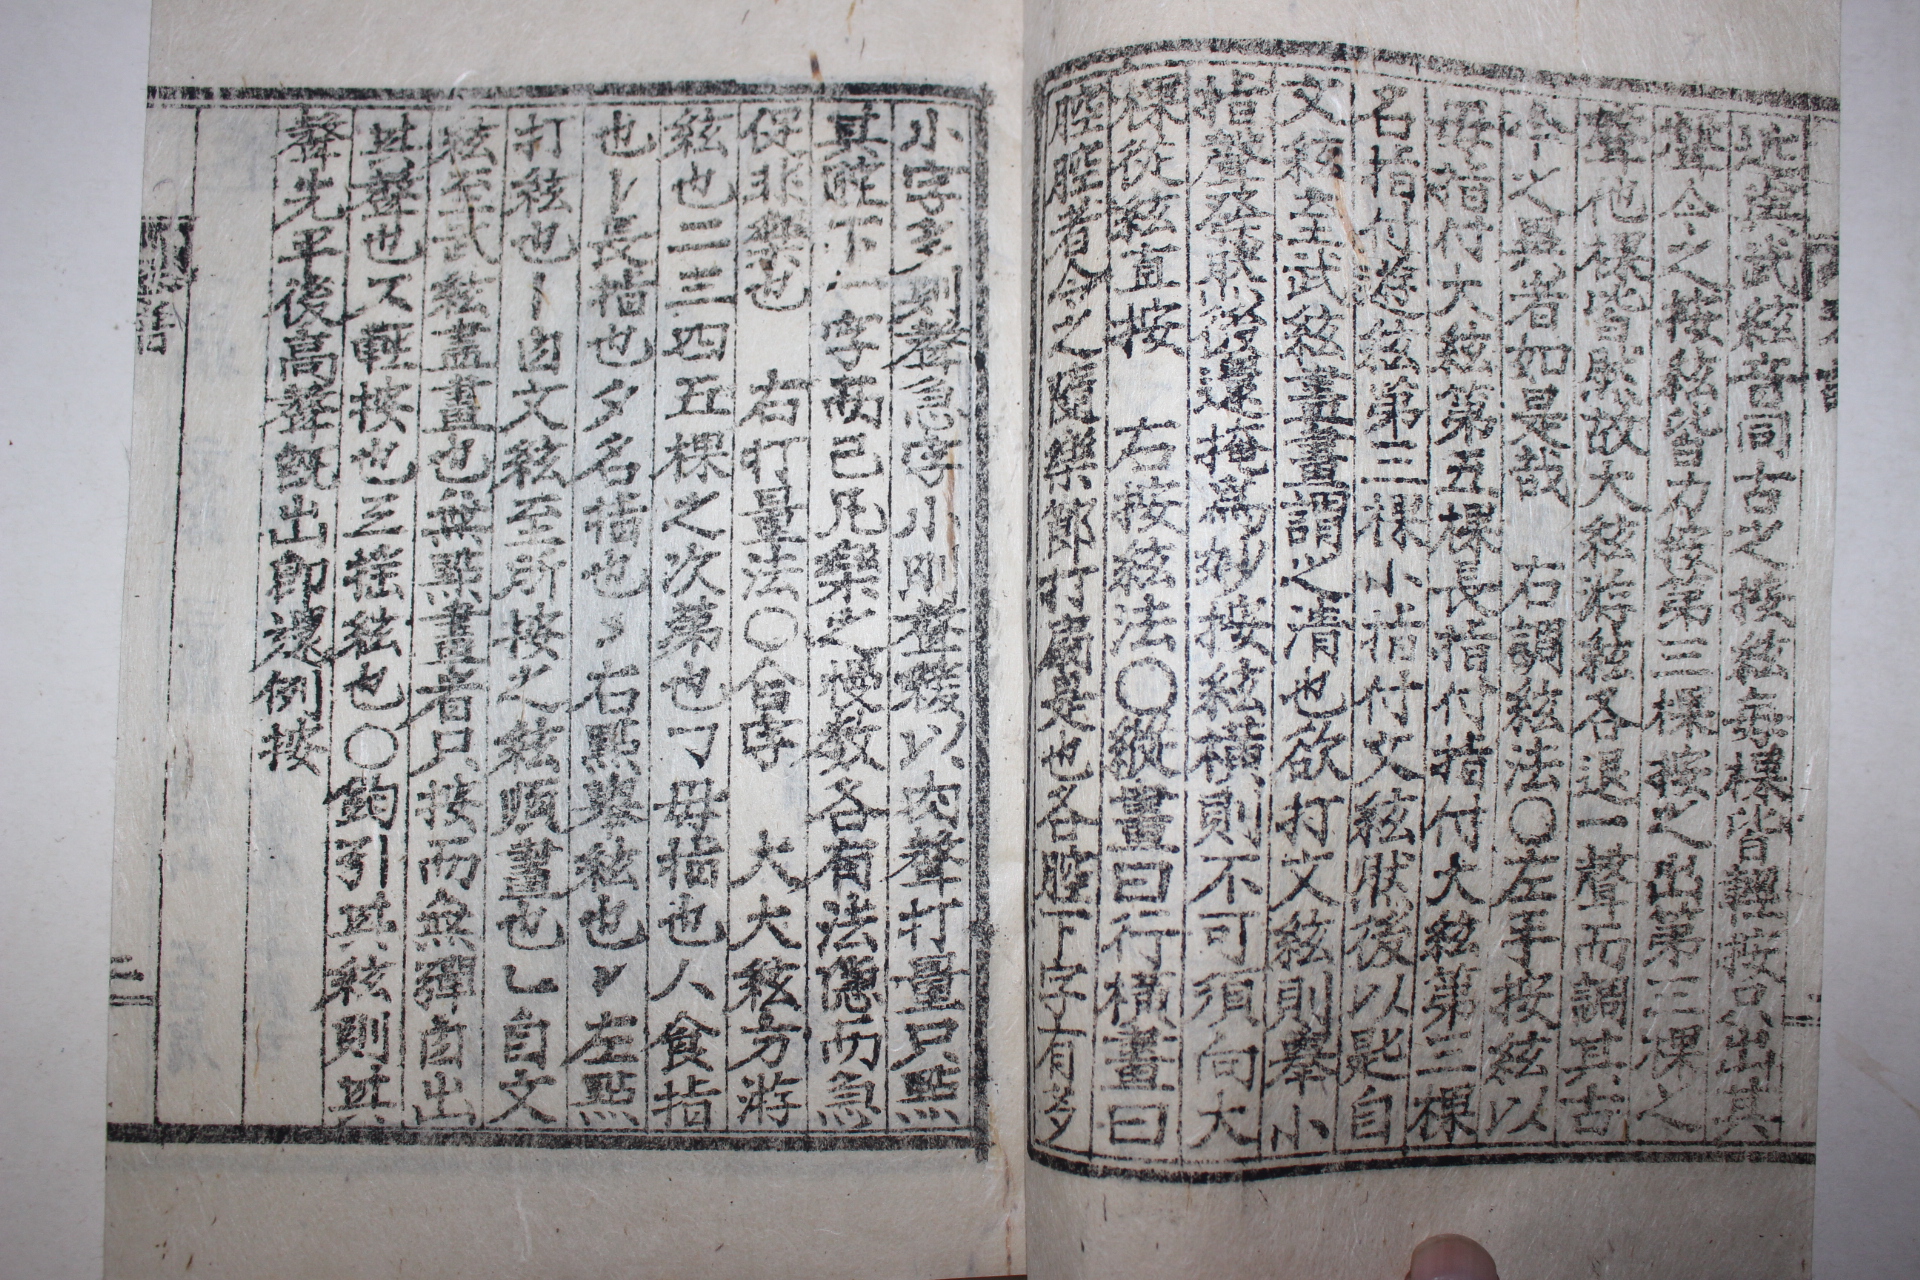 此與武絃音同古之按絃每棵皆輕按只出其
聲今之按絃皆力按第三棵按之出第三棵之
聲他棵皆然故大絃游絃各退一聲而調其古
今之異者如是哉　右調絃法〇左手按絃以
母指付大絃第五棵長指付指付大絃第三棵
名指付遊絃第三棵小指付文絃然後以匙自
文絃至武絃畫畫謂之清也欲打文絃則擧小
指聲發然後還掩爲妙按絃橫則不可須向大
棵從絃直按　右按絃法〇縱畫曰行橫畫曰
腔腔者今之隨樂節打扇是也各腔下字有多
小字多則聲急字小則聲緩以內聲打量只點
其腔下一字而已凡樂之慢數各有法隱而急
促非樂也　右打量法〇合字　大大絃方游
絃也二三四五棵之次第也㇆母指也人食指
也㇑長指也夕名指也〻右點擧絃也㇑左點
打絃也丨自文絃至所按之絃順畫也乚自文
絃至武絃盡畫也無點畫者只按而無彈自出
其聲也ス輕按也三搖絃也〇鉤引其絃則其
聲先平後高聲旣出卽還例按